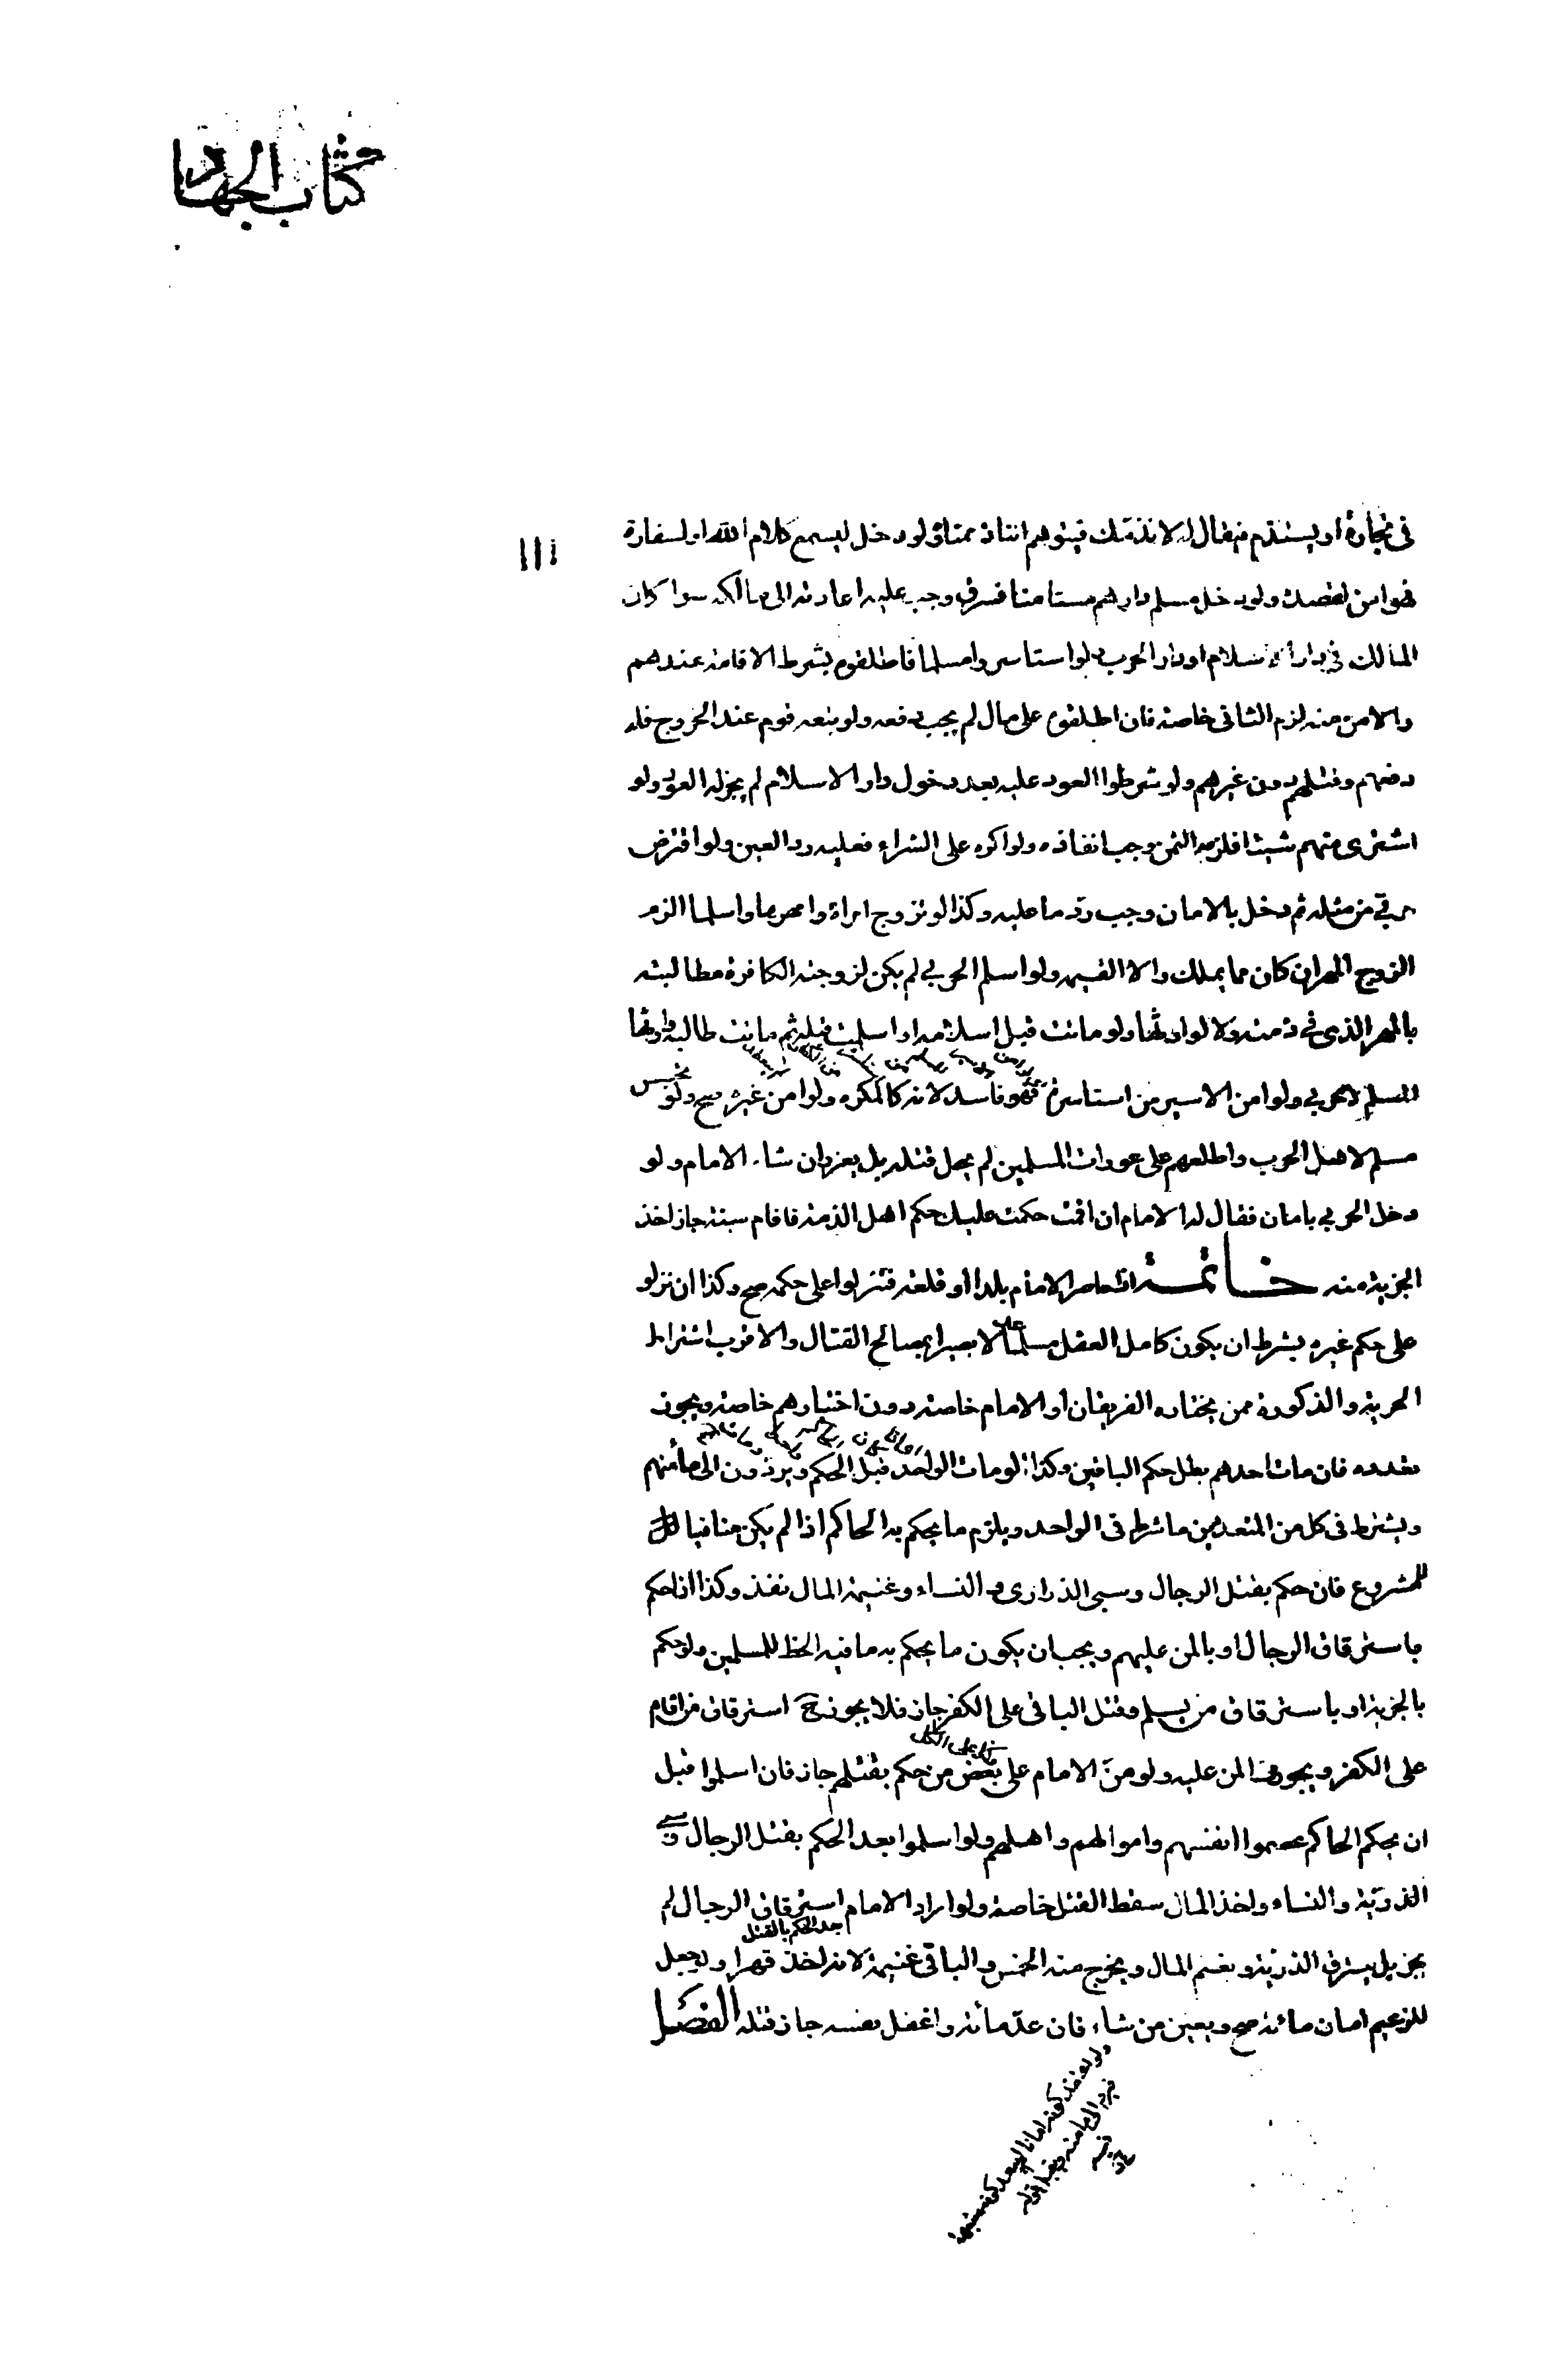 كتاب الجهاد
١١١
في تجارة او يستذم فيقال له لا نذمّك فيتوهم انّا نذمّ ممتاق ولو دخل ليسمع كلام الله او لسفارة
فهو امن لقصده ولو دخل مسلم دارهم مستامنا فسرق وجب عليه اعادته الى مالكه سوا كان
المالك في دار الاسلام او دار الحرب ولو استاسروا مسلما فاطلقوه بشرط الاقامة عندهم
والامن منه لزم الثاني خاصة فان اطلقوه على مال لم يجب دفعه ولو تبعه قوم عند الخروج فله
دفعهم وقتلهم دون غيرهم ولو شرطوا العود عليه بعد دخول دار الاسلام لم يجز له العود ولو
اشترى منهم شيئا فلزمه الثمن وجب انفاذه ولو اكره على الشراء فعليه رد العين ولو اقترض
حربي من مثله ثم دخل بالامان وجب ردّ ما عليه وكذا لو تزوج امراة وامهرها واسلما الزم
الزوج المهر ان كان مما يملك والا القيمه ولو اسلم الحربي لم يكن لزوجته الكافرة مطالبته
بالمهر الذي في ذمته ولا لوارثها ولو ماتت قبل اسلامه او اسلمت قبله ثم ماتت طالبه وارثها
المسلم لا الحربي ولو امن الاسير من استاسره فهو فاسد لانه كالمكره ولو امن غيره صح ولو تجسس
مسلم لاهل الحرب واطلعهم على عورات المسلمين لم يحل قتله بل يعزر ان شاء الامام ولو
دخل الحربي بامان فقال له الامام ان اقمت حكمت عليك حكم اهل الذمة فاقام سنة جاز اخذ
الجزية منه خاتمة اذا حاصر الامام بلدا او قلعة فنزلوا على حكمه صح وكذا ان نزلوا
على حكم غيره بشرط ان يكون كامل العقل مسلما عدلا بصيرا بمصالح القتال والاقرب اشتراط
الحرية والذكورة ممن يختاره الفريقان او الامام خاصة دون اختيارهم خاصة ويجوز
تعدده فان مات احدهم بطل حكم الباقين وكذا لو مات الواحد قبل الحكم ويردّون الى مأمنهم
ويشترط في كل من المتعددين ما شرط في الواحد ويلزم ما يحكم به الحاكم اذا لم يكن منافيا
للمشروع فان حكم بقتل الرجال وسبى الذراري و النساء وغنيمة المال نفذ وكذا اذا حكم
باسترقاق الرجال او بالمن عليهم ويجب ان يكون ما يحكم به ما فيه الحظ للمسلمين ولو حكم
بالجزية او باسترقاق من يسلم وقتل الباقي على الكفر جاز فلا يجوز ح استرقاق من اقام
على الكفر ويجوز المن عليه ولو منّ الامام على بعض من حكم بقتلهم جاز فان اسلموا قبل
ان يحكم الحاكم عصموا انفسهم واموالهم واهلهم ولو اسلموا بعد الحكم بقتل الرجال وسبي
الذريّة والنساء واخذ المال سقط القتل خاصة ولو اراد الامام استرقاق الرجال لم
بعد الحكم بالقتل
يجز بل يسترق الذرية ويغنم المال ويخرج منه الخمس والباقي غنيمة لانه اخذ قهرا ولو جعل
للزعيم امان مائة صح ويعين من شاء فان عدّ مائة واغفل نفسه جاز قتله الفصل